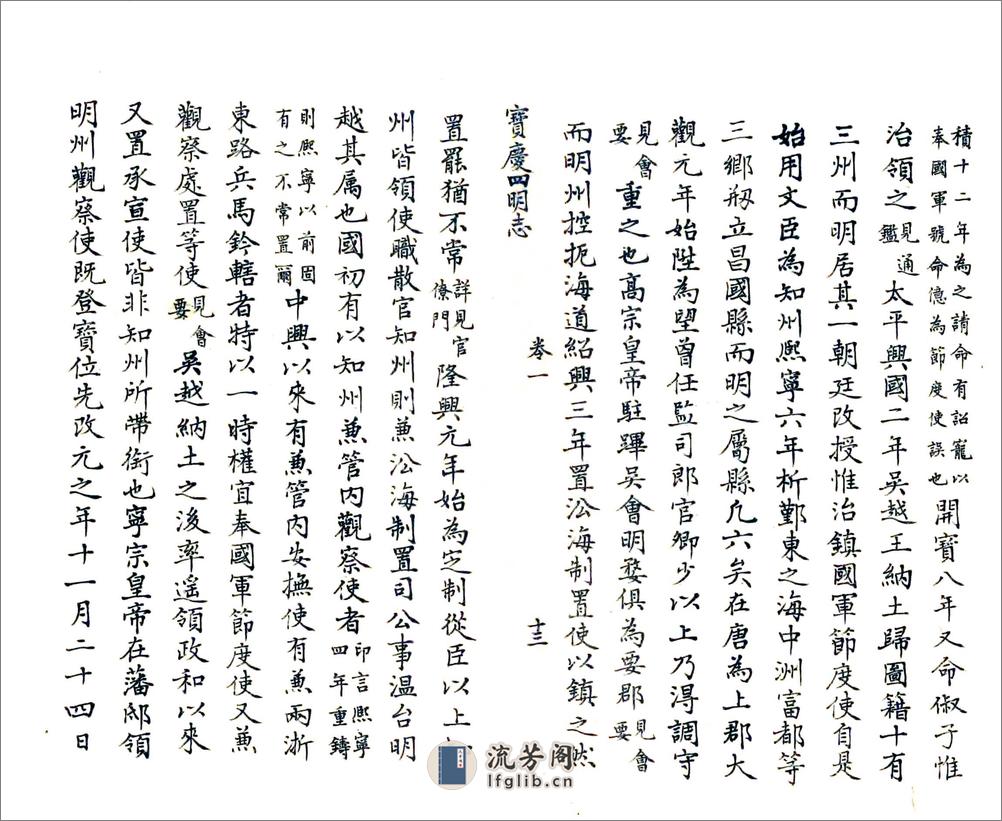 積十二年為之請命有詔寵以奉國軍號命億為節度使誤也開寶八年又命俶子惟
治領之見通鑑太平興國二年吳越王納土歸圖籍十有
三州而明居其一朝廷改授惟治鎮國軍節度使自是
始用文臣為知州熙寧六年析鄞東之海中洲富都等
三鄉剏立昌國縣而明之屬縣凡六矣在唐為上郡大
觀元年始陞為望曾任監司郎官卿少以上乃得調守
見會要重之也高宗皇帝駐蹕吳會明婺俱為要郡見會要
而明州控扼海道紹興三年置沿海制置使以鎮之然
寶慶四明志 卷一 十三
置罷猶不常詳見官僚門隆興元年始為定制從臣以上
州皆領使職散官知州則兼沿海制置司公事温台明
越其屬也國初有以知州兼管内觀察使者印言熙寧四年重鑄
則熙寧以前固有之不常置爾中興以來有兼管内安撫使有兼兩浙
東路兵馬鈐轄者特以一時權宜奉國軍節度使又兼
觀察處置等使見會要吳越納土之後率遥領政和以來
又置承宣使皆非知州所帶銜也寧宗皇帝在藩邸領
明州觀察使既登寶位先改元之年十一月二十四日
流芳阁
lfglib.com